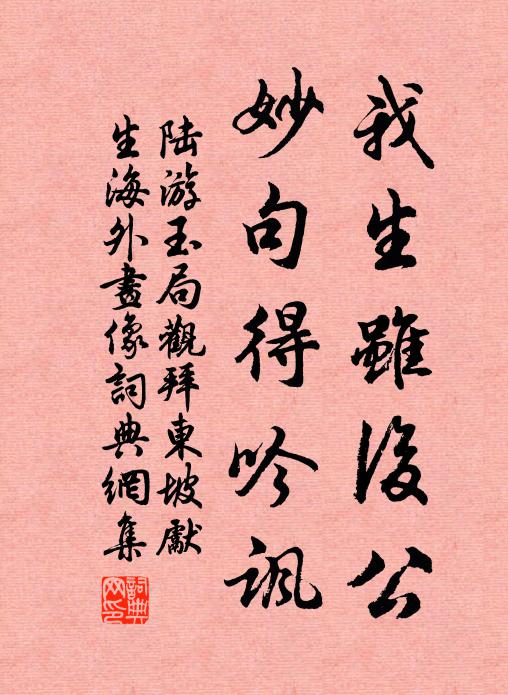 我生雖後公
妙句得吟諷
陸游玉局觀拜東坡獻
生海外畫像詞典網集
詞典
网印